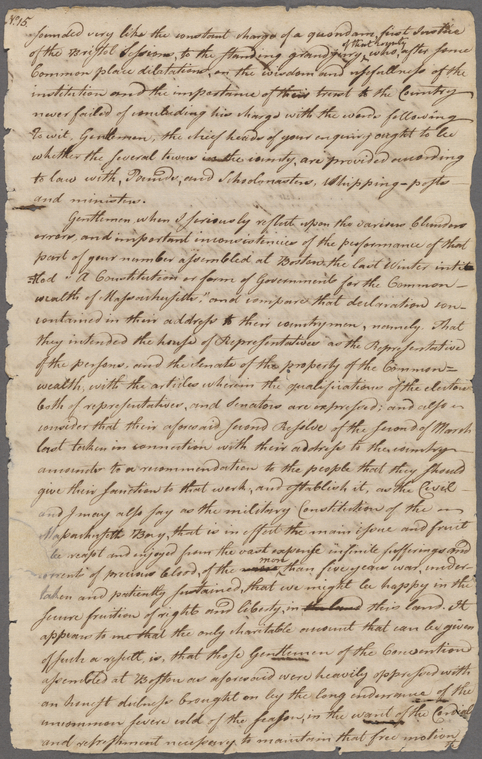 No 15.
sounded very like the constant charge of a quondam first Justice
of that County
of the Bristol Sessions, to the standing grand jury, who, after some
Common place dilatations, on the wisdom and usefullness of the
institution and the importance of their trust to the Country
never failed of concluding his charge with the words following
To wit, Gentlemen, the chief heads of your enquiry ought to be
whether the several towns in the county, are provided according
to law with, Pounds, and Schoolmasters, Whipping-posts
and ministers.
Gentlemen, when I seriously reflect upon the various blunders
errors, and important inconsistencies of the performance of that
part of your number assembled at Boston the last Winter inti=
=tled "A Constitution or form of Government for the Common-
wealth of Massachusetts," and compare that declaration con-
contained in their address to their countrymen, namely. That
they intended the house of Representatives as the Representative
of the persons, and the Senate of the property of the Common=
wealth, with the articles wherein the qualifications of the electors
both of representatives, and Senators are expressed; and also
consider that their aforesaid second Resolve of the second of March
last taken in connection with their address to their country-
amounts to a recommendation to the people that they should
give their sanction to that work, and establish it, as the Civil
and I may also say as the military Constitution of the
Massachusetts Bay, that is in effect the main spice and fruit
be reapt and enjoyed from the vast expense infinite sufferings and
mor
torrents of precious blood, of the than five years war, under-
taken and patiently sustained, that we might be happy in the
secure fruition of right and liberty, in the land this land. It
appears to me that the only charitable account that can be given
of such a result, is, that those Gentlemen of the Convention
assembled at Boston as aforesaid were heavily oppressed with
an honest dulness brought on by the long endurance of the
uncommon severe cold of the season, in the want of the Cordial
and refreshment necessary to maintain that free motion